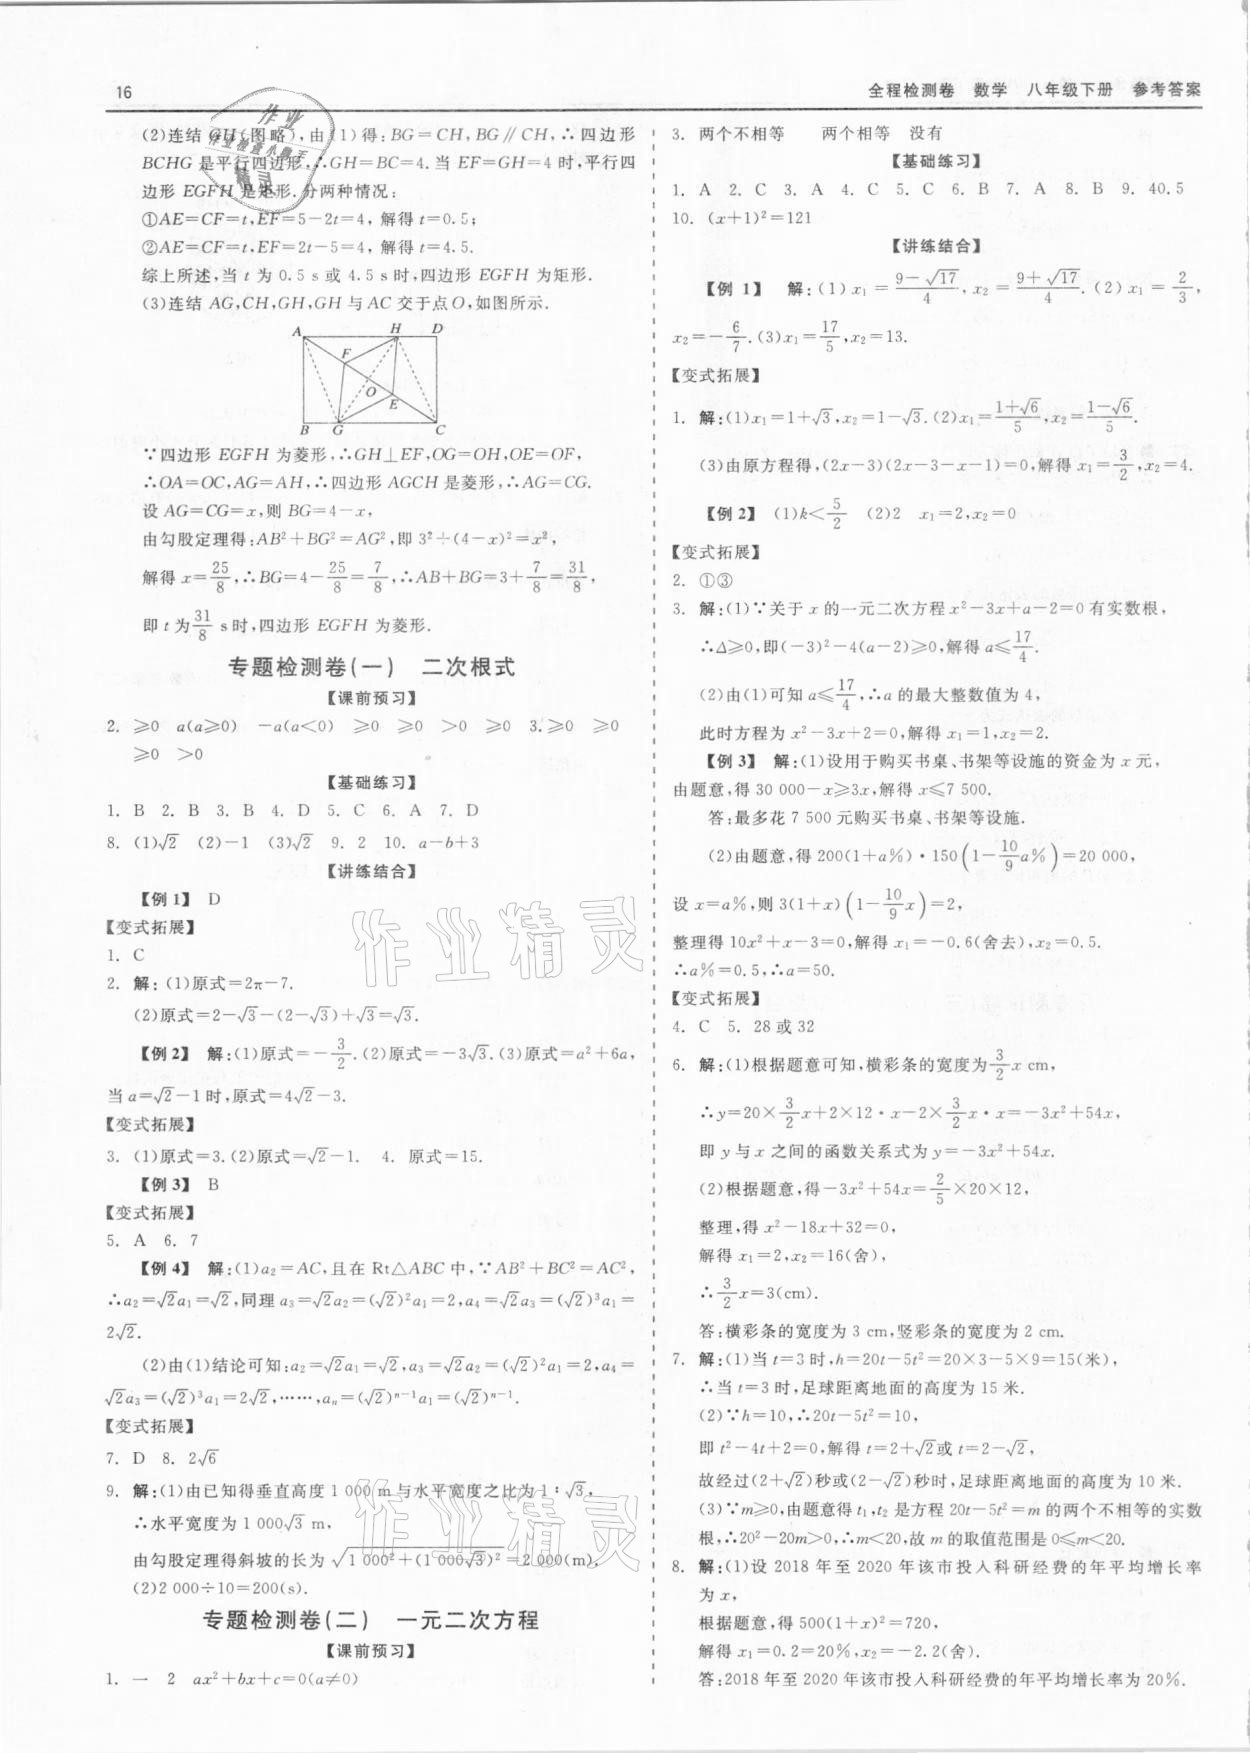 16
全程检测卷 数学 八年级下册 参考答案
(2)连结GH(图略),由(1)得:BG=CH,BG∥CH,∴四边形
BCHG是平行四边形,∴GH=BC=4.当EF=GH=4时,平行四
边形EGFH是矩形.分两种情况:
①AE=CF=t,EF=5-2t=4,解得t=0.5;
②AE=CF=t,EF=2t-5=4,解得t=4.5.
综上所述,当t为0.5 s或4.5 s时,四边形EGFH为矩形.
(3)连结AG,CH,GH,GH与AC交于点O,如图所示.
A H D
F
O
E
B G C
∵四边形EGFH为菱形,∴GH⊥EF,OG=OH,OE=OF,
∴OA=OC,AG=AH,∴四边形AGCH是菱形,∴AG=CG.
设AG=CG=x,则BG=4-x,
由勾股定理得:AB²+BG²=AG²,即3²+(4-x)²=x²,
解得x=25/8,∴BG=4-25/8=7/8,∴AB+BG=3+7/8=31/8,
即t为31/8 s时,四边形EGFH为菱形.
专题检测卷(一) 二次根式
【课前预习】
2. ≥0 a(a≥0) -a(a<0) ≥0 ≥0 >0 ≥0 3.≥0 ≥0
≥0 >0
【基础练习】
1. B 2. B 3. B 4. D 5. C 6. A 7. D
8. (1)√2 (2)-1 (3)√2 9. 2 10. a-b+3
【讲练结合】
【例1】 D
【变式拓展】
1. C
2. 解:(1)原式=2π-7.
(2)原式=2-√3-(2-√3)+√3=√3.
【例2】 解:(1)原式=-3/2.(2)原式=-3√3.(3)原式=a²+6a,
当a=√2-1时,原式=4√2-3.
【变式拓展】
3. (1)原式=3.(2)原式=√2-1. 4. 原式=15.
【例3】 B
【变式拓展】
5. A 6. 7
【例4】 解:(1)a₂=AC,且在Rt△ABC中,∵AB²+BC²=AC²,
∴a₂=√2a₁=√2,同理a₃=√2a₂=(√2)²a₁=2,a₄=√2a₃=(√2)³a₁=
2√2.
(2)由(1)结论可知:a₂=√2a₁=√2,a₃=√2a₂=(√2)²a₁=2,a₄=
√2a₃=(√2)³a₁=2√2,……,aₙ=(√2)ⁿ⁻¹a₁=(√2)ⁿ⁻¹.
【变式拓展】
7. D 8. 2√6
9. 解:(1)由已知得垂直高度1 000 m与水平宽度之比为1∶√3,
∴水平宽度为1 000√3 m,
由勾股定理得斜坡的长为√(1 000²+(1 000√3)²)=2 000(m).
(2)2 000÷10=200(s).
专题检测卷(二) 一元二次方程
【课前预习】
1. 一 2 ax²+bx+c=0(a≠0)
3. 两个不相等 两个相等 没有
【基础练习】
1. A 2. C 3. A 4. C 5. C 6. B 7. A 8. B 9. 40.5
10. (x+1)²=121
【讲练结合】
【例1】 解:(1)x₁=(9-√17)/4,x₂=(9+√17)/4.(2)x₁=2/3,
x₂=-6/7.(3)x₁=17/5,x₂=13.
【变式拓展】
1. 解:(1)x₁=1+√3,x₂=1-√3.(2)x₁=(1+√6)/5,x₂=(1-√6)/5.
(3)由原方程得,(2x-3)(2x-3-x-1)=0,解得x₁=3/2,x₂=4.
【例2】 (1)k<5/2 (2)2 x₁=2,x₂=0
【变式拓展】
2. ①③
3. 解:(1)∵关于x的一元二次方程x²-3x+a-2=0有实数根,
∴Δ≥0,即(-3)²-4(a-2)≥0,解得a≤17/4.
(2)由(1)可知a≤17/4,∴a的最大整数值为4,
此时方程为x²-3x+2=0,解得x₁=1,x₂=2.
【例3】 解:(1)设用于购买书桌、书架等设施的资金为x元,
由题意,得30 000-x≥3x,解得x≤7 500.
答:最多花7 500元购买书桌、书架等设施.
(2)由题意,得200(1+a%)·150(1-10/9a%)=20 000,
设x=a%,则3(1+x)(1-10/9x)=2,
整理得10x²+x-3=0,解得x₁=-0.6(舍去),x₂=0.5.
∴a%=0.5,∴a=50.
【变式拓展】
4. C 5. 28或32
6. 解:(1)根据题意可知,横彩条的宽度为3/2x cm,
∴y=20×3/2x+2×12·x-2×3/2x·x=-3x²+54x,
即y与x之间的函数关系式为y=-3x²+54x.
(2)根据题意,得-3x²+54x=2/5×20×12,
整理,得x²-18x+32=0,
解得x₁=2,x₂=16(舍),
∴3/2x=3(cm).
答:横彩条的宽度为3 cm,竖彩条的宽度为2 cm.
7. 解:(1)当t=3时,h=20t-5t²=20×3-5×9=15(米),
∴当t=3时,足球距离地面的高度为15米.
(2)∵h=10,∴20t-5t²=10,
即t²-4t+2=0,解得t=2+√2或t=2-√2,
故经过(2+√2)秒或(2-√2)秒时,足球距离地面的高度为10米.
(3)∵m≥0,由题意得t₁,t₂是方程20t-5t²=m的两个不相等的实数
根,∴20²-20m>0,∴m<20,故m的取值范围是0≤m<20.
8. 解:(1)设2018年至2020年该市投入科研经费的年平均增长率
为x,
根据题意,得500(1+x)²=720,
解得x₁=0.2=20%,x₂=-2.2(舍).
答:2018年至2020年该市投入科研经费的年平均增长率为20%.
作业精灵
作业精灵